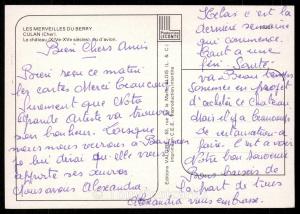 LES MERVEILLES DU BERRY
CULAN (Cher)
Le château (XIVe XVe siècles) vu d'avion.
Bien Chers Amis
Bien reçu ce matin
les cartes Merci beaucoup
surement que Notre
Grande Artiste va trouver
son bonheur. Lorsque
nous nous verrons à
je lui dirai qu'elle vous
apporte ses
vous avons Alexandra
LECONTE
Hélas c'est la
dernière semaine
qui commence.
tant à une
fin. Santé
va. Beau temps
Sommes en projet
d'achète ce Chateau
mais il y a beaucoup
de restauration
à faire. C'est à voir
Notre bon souvenir
Bons baisers de
la part de tous
Alexandra vous embrasse.